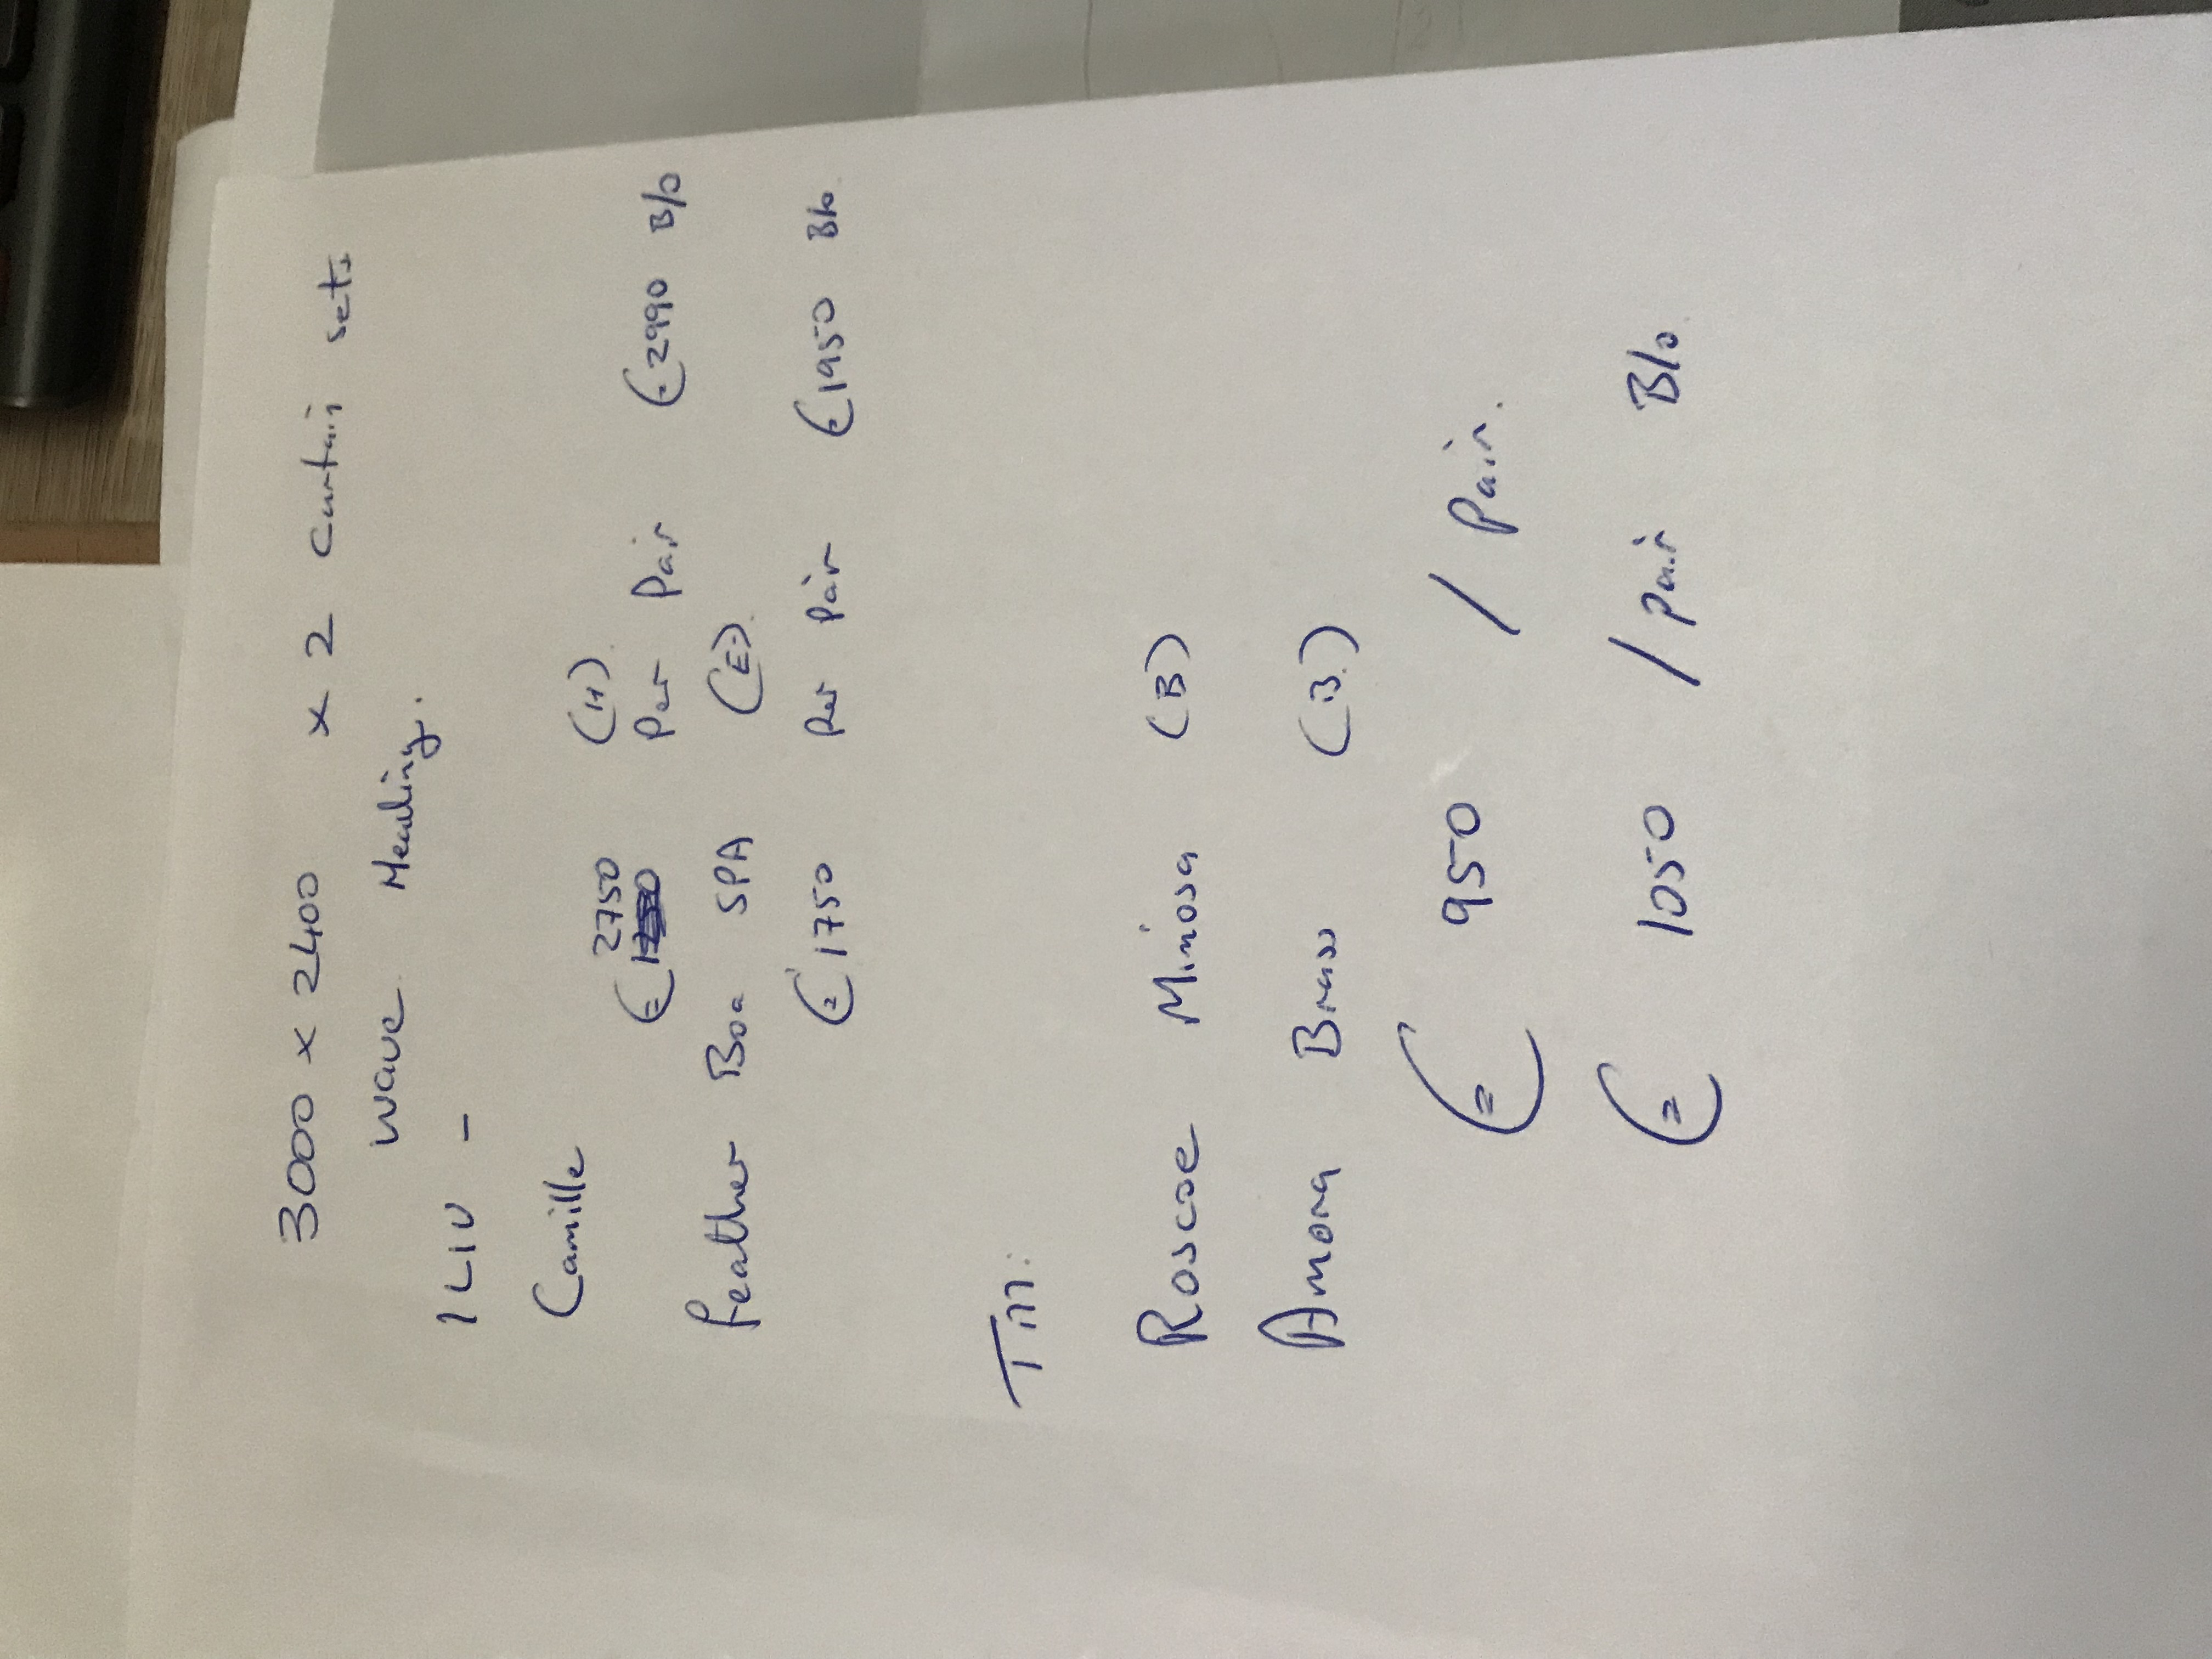 3000 x 2400 x 2 Curtain sets
Wave Heading.
ILIV -
Camille (H)
€ 2750 Per Pair €2990 B/o
Feather Boa SPA (E)
€1750 Per Pair €1950 B/o
Roscoe Mimosa (B)
Amora Brass (B)
€ 950 / Pair.
€ 1050 / Pair B/o